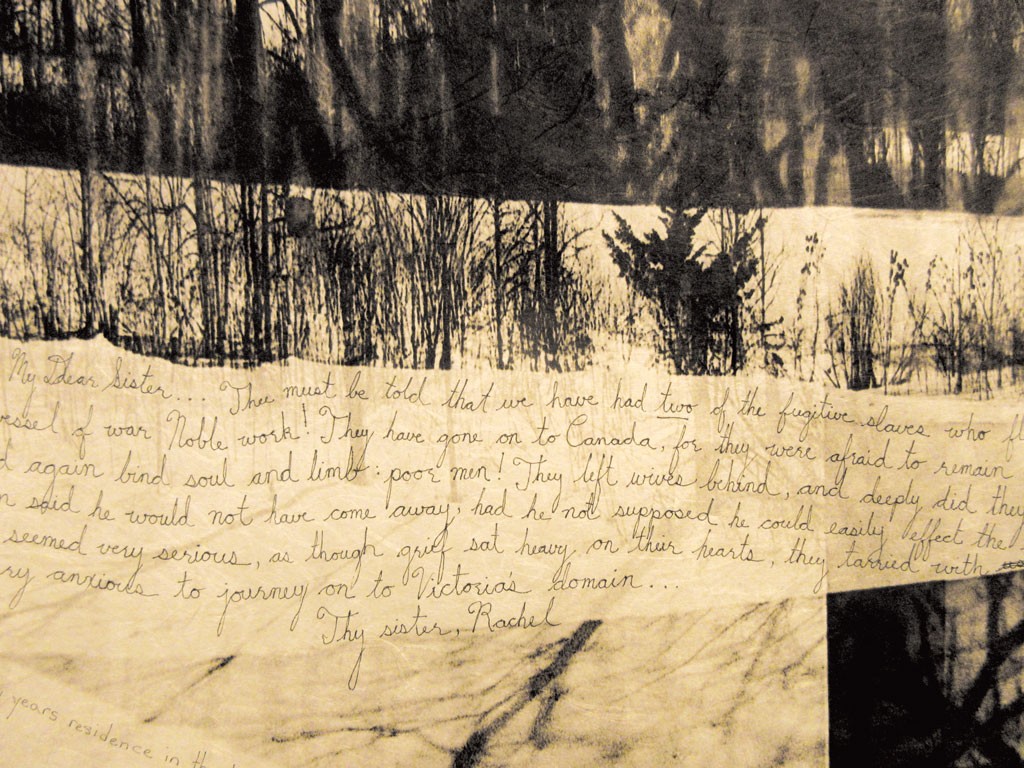 My Dear Sister... Thee must be told that we have had two of the fugitive slaves who fl
essel of war Noble work! They have gone on to Canada, for they were afraid to remain
d again bind soul and limb: poor men! They left wives behind, and deeply did their
n said he would not have come away, had he not supposed he could easily effect the
seemed very serious, as though grief sat heavy on their hearts, they tarried with us
ry anxious to journey on to Victoria's domain...
Thy sister, Rachel
years residence in th